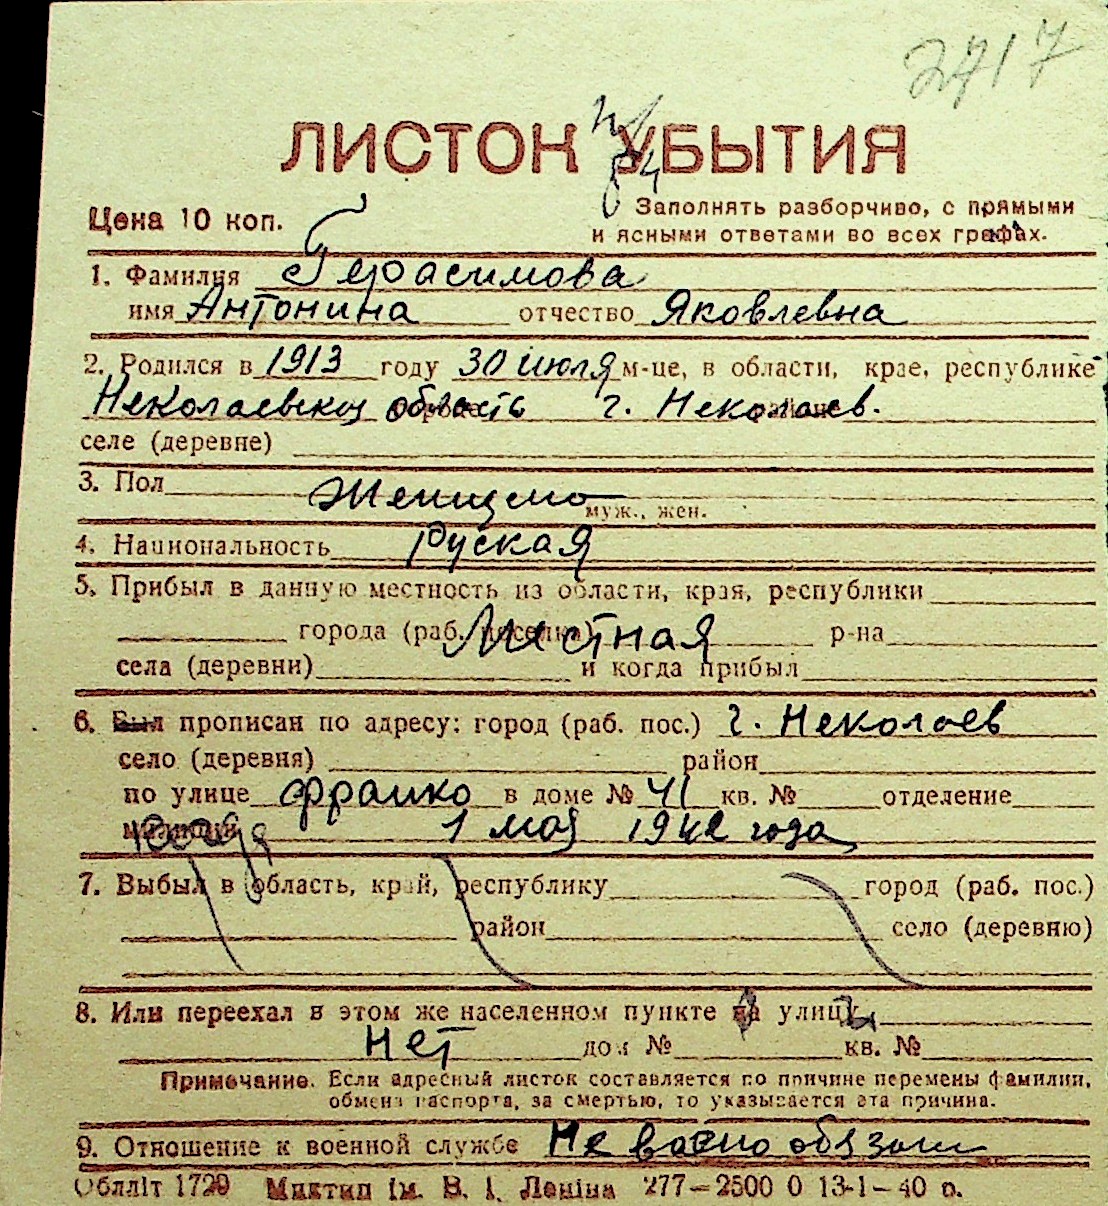 2717
ЛИСТОК УБЫТИЯ
Цена 10 коп.
Заполнять разборчиво, с прямыми
и ясными ответами во всех графах.
1. Фамилия Герасимова
имя Антонина отчество Яковлевна
2. Родился в 1913 году 30 июля м-це, в области, крае, республике
Неколаевской область г. Неколаев.
селе (деревне)
3. Пол Женщено
муж., жен.
4. Национальность Руская
5. Прибыл в данную местность из области, края, республики
города (раб. поселка) Местная р-на
села (деревни) и когда прибыл
6. Был прописан по адресу: город (раб. пос.) г. Неколаев
село (деревня) район
по улице Франко в доме № 41 кв. № отделение
милиции 1 мая 1942 года
7. Выбыл в область, край, республику город (раб. пос.)
район село (деревню)
8. Или переехал в этом же населенном пункте на улицу
Нет дом № кв. №
Примечание. Если адресный листок составляется по причине перемены фамилии,
обмена паспорта, за смертью, то указывается эта причина.
9. Отношение к военной службе Не воено обязан
Облліт 1729 Миктип ім. В. І. Леніна 277—2500 0 13-1—40 р.